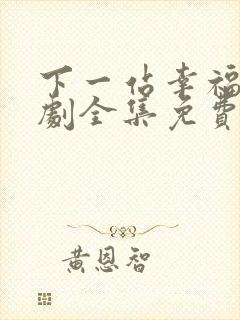 下一站幸福
劇全集免費
黃恩智